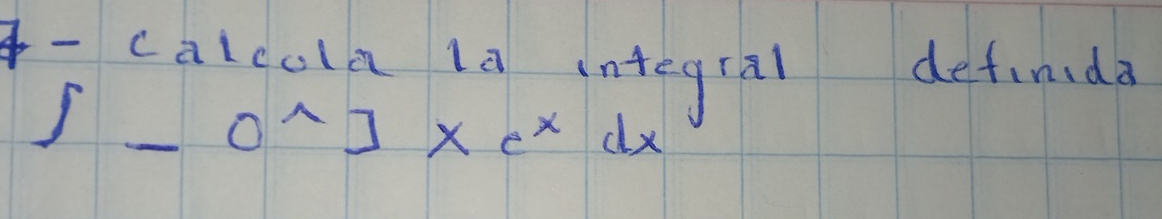 7- calcola la integral definida
∫ _ 0 ^ 1 x e^x dx